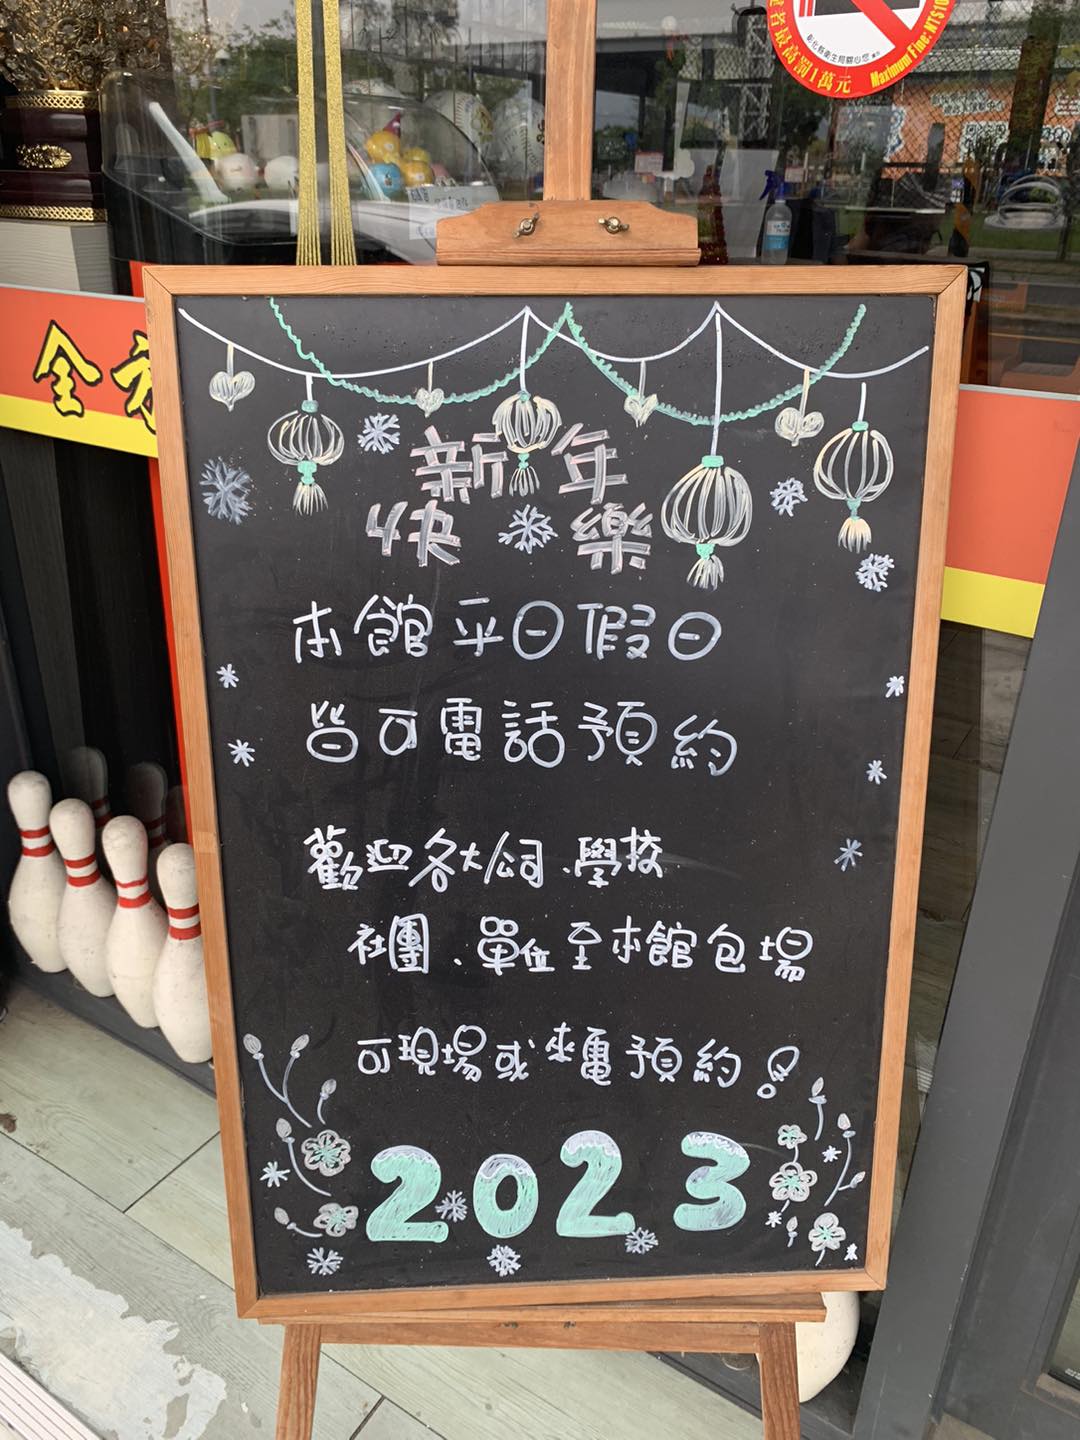 者最高罰1萬元
Maximum Fine: NT$10
彰化縣衛生局關心您
全
新年
快樂
本館平日假日
皆可電話預約
歡迎各大公司、學校
社團、單位至本館包場
可現場或來電預約!
2023